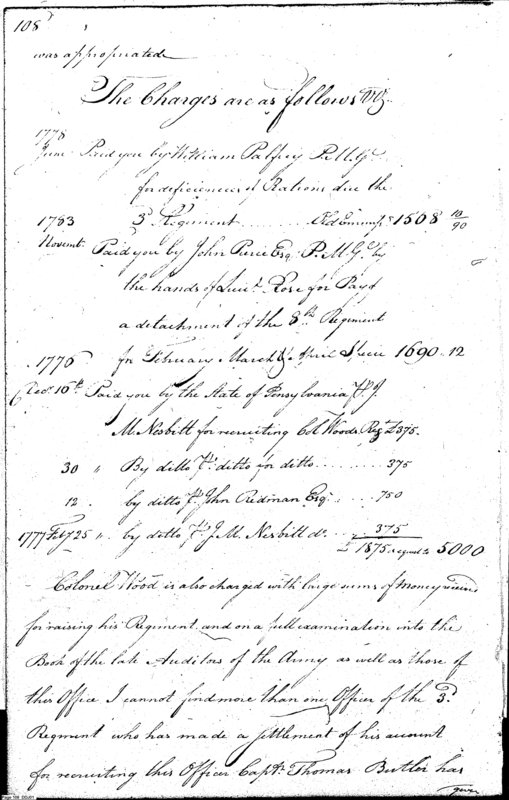 108
was appropriated
The Charges are as follows Viz.
1778
June Paid you by William Palfrey P.M.G.
for deficiencies of Rations due the
1783 3d Regiment ........ Old Emms $ 1508 10/90
Novemr. Paid you by John Pierce Esq. P.M.G. by
the hands of Lieut. Rose for Pay of
a detachment of the 8th Regiment
1776 for February March & April Specie 1690 12
Decr. 16th Paid you by the State of Pensylvania Pr. J
M Nesbitt for recruiting Col Woods Regt £375.
30 " By ditto Pr. ditto for ditto ........ 375
12. by ditto Pr. John Redman Esq. ... 750
1777 Feby 25 " by ditto Pr. J.M. Nesbitt do. .. 375
£ 1875 equal to 5000
Colonel Wood is also charged with large sums of Money received
for raising his Regiment and on a full examination into the
Book of the late Auditors of the Army as well as those of
this Office I cannot find more than one Officer of the 3d.
Regiment who has made a settlement of his account
for recruiting this Officer Capt. Thomas Butler has
given
Page 108